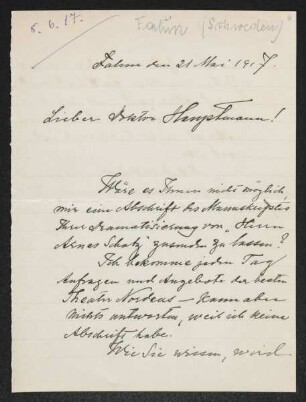 5. 6. 17. Falun (Schweden)
Falun den 21 Mai 1917.
Lieber Doktor Hauptmann!
Wäre es Ihnen nicht möglich
mir eine Abschrift des Manuskriptes
Ihrer Dramatisierung von „Herrn
Arnes Schatz" zusenden zu lassen?
Ich bekomme jeden Tag
Anfragen und Angebote der besten
Theater Nordens – kann aber
nichts antworten, weil ich keine
Abschrift habe.
Wie Sie wissen, wird